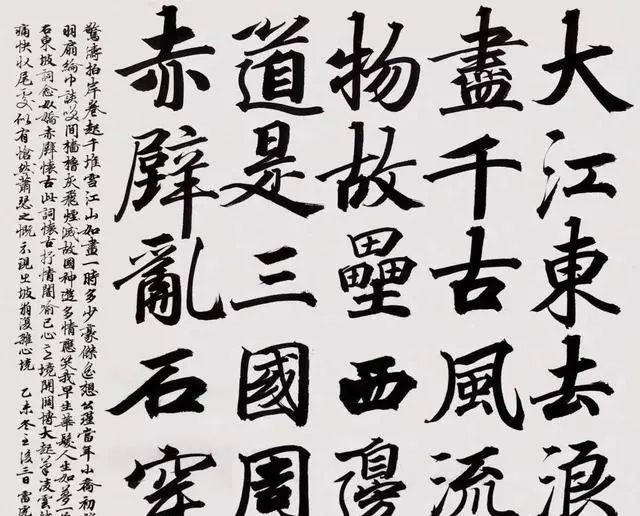 大江東去浪
盡千古風流
物故壘西邊
道是三國周
赤壁亂石穿
驚濤拍岸卷起千堆雪江山如畫一時多少豪傑遙想公瑾當年小喬初
羽扇綸巾談笑間檣櫓灰飛煙滅故國神遊多情應笑我早生華髮人生如夢一
右東坡詞念奴嬌赤壁懷古此詞懷古抒情闊己心之境開闊博大起筆凌雲
痛快收尾處似有愴然蕭瑟之慨亦現出坡翁復雜心境 乙未冬至後三日雪